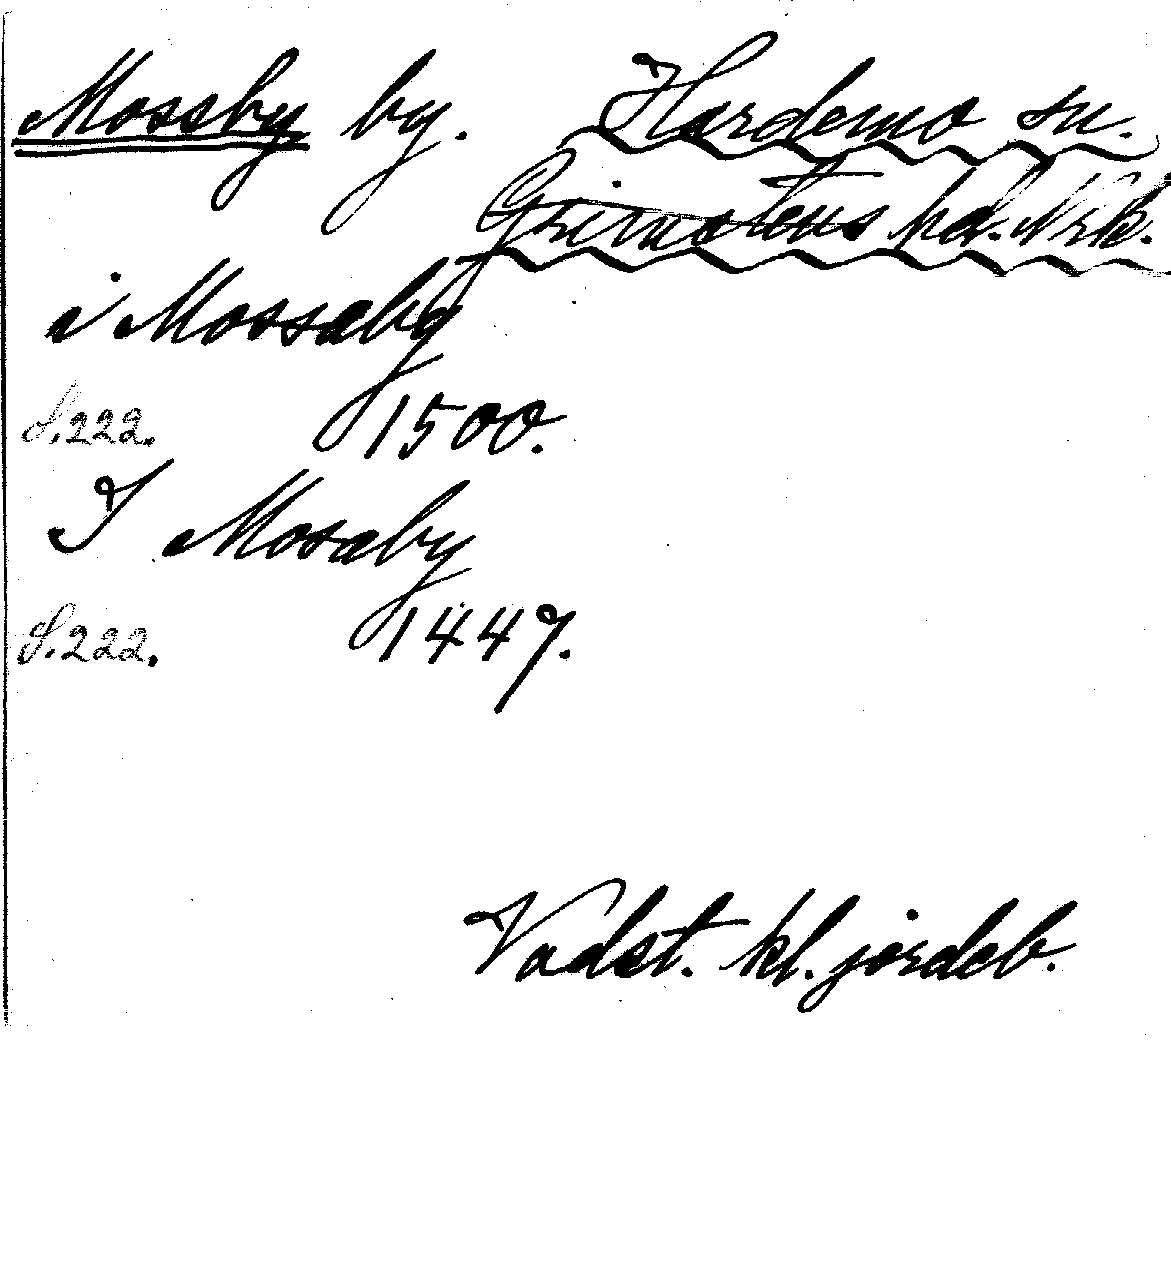 Mossby by. Hardemo sn.
Grimstens hd. Nrk.
i Mossaby
S.222. 1500.
I Mosaby
S.222. 1447.
Vadst. kl. jordeb.